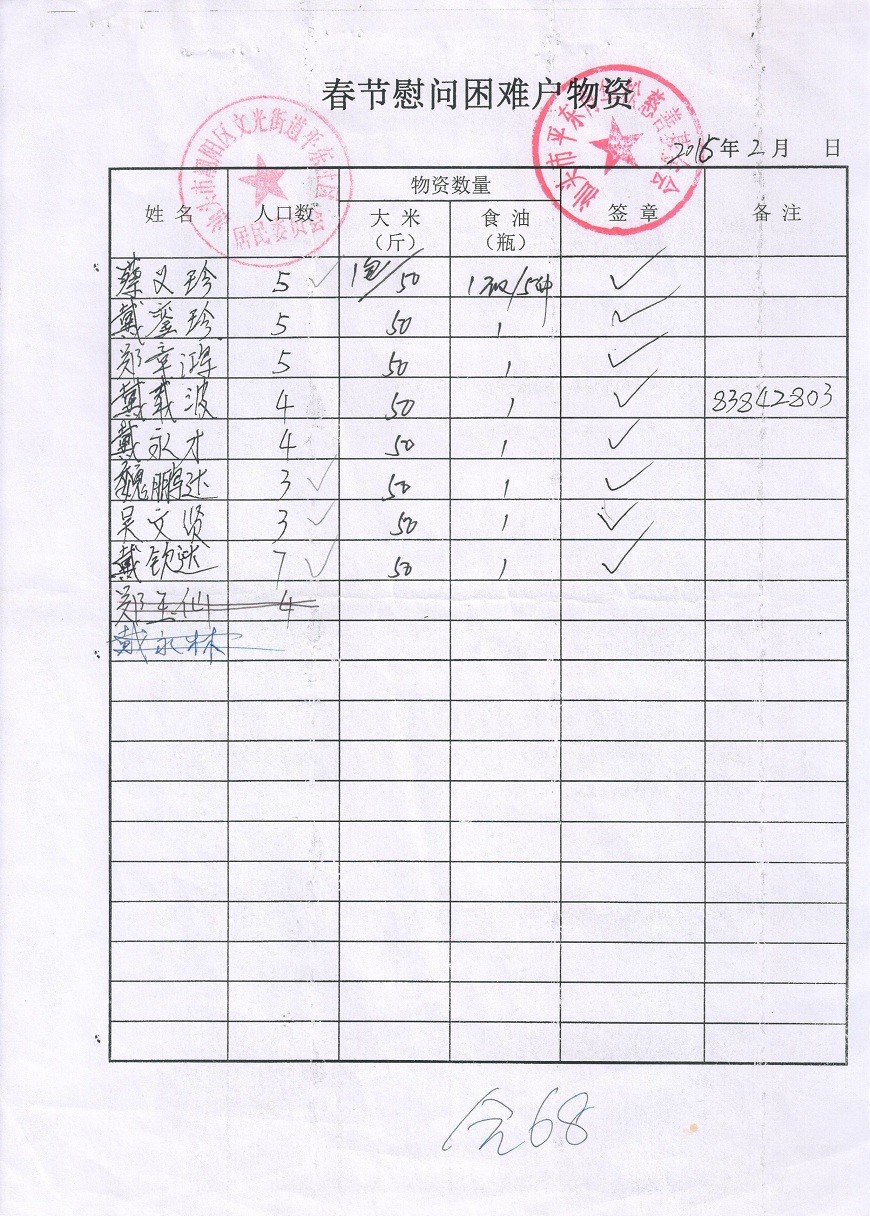 春节慰问困难户物资
汕头市潮阳区文光街道平东社区
居民委员会
汕头市平东 慈善基金会
2015年2月 日
姓名 人口数 物资数量 签章 备注
大米(斤) 食油(瓶)
蔡义珍 5 ✓ 1包/50 1 /5 ✓
戴銮珍 5 50 1 ✓
郑章鸿 5 50 1 ✓
戴载波 4 50 1 ✓ 83842803
戴永才 4 50 1 ✓
魏鹏达 3 ✓ 50 1 ✓
吴文贤 3 ✓ 50 1 ✓
戴钦达 7 ✓ 50 1 ✓
郑玉仙 4
戴永林
68